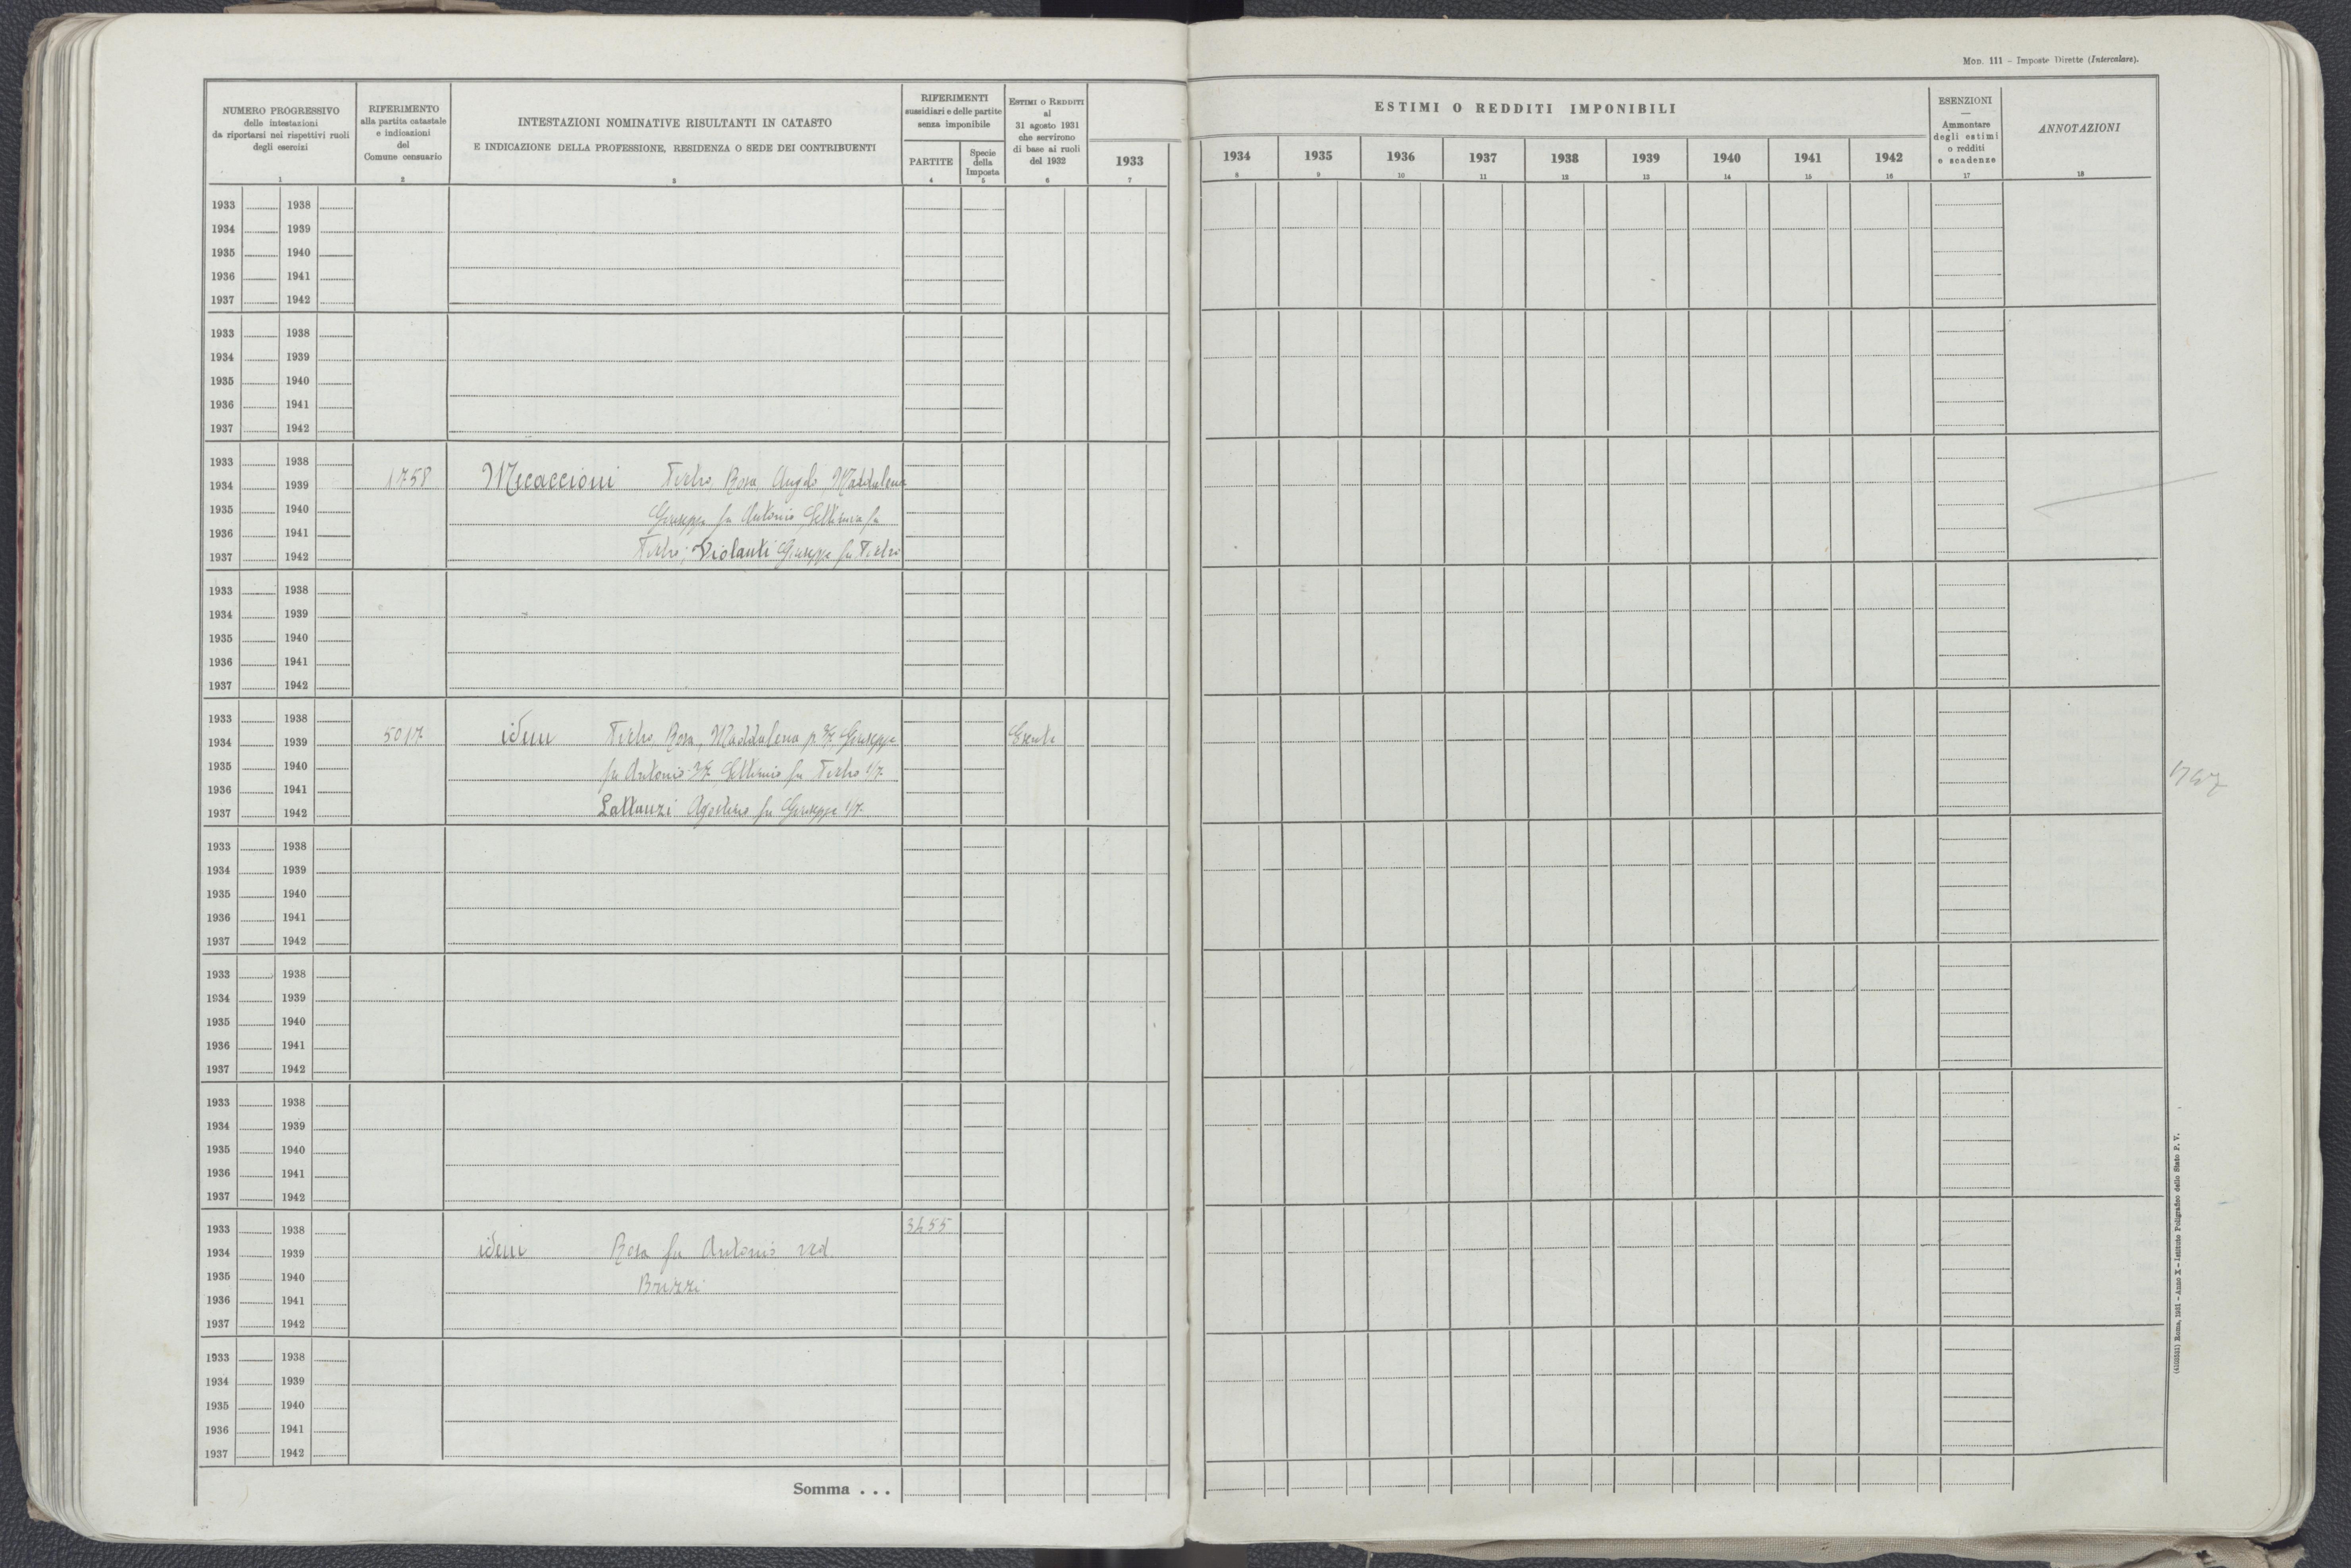 Mod. 111 - Imposte Dirette (Intercalare).
NUMERO PROGRESSIVO
delle intestazioni
da riportarsi nei rispettivi ruoli
degli esercizi
1
RIFERIMENTO
alla partita catastale
e indicazioni
del
Comune censuario
2
INTESTAZIONI NOMINATIVE RISULTANTI IN CATASTO
E INDICAZIONE DELLA PROFESSIONE, RESIDENZA O SEDE DEI CONTRIBUENTI
3
RIFERIMENTI
sussidiari e delle partite
senza imponibile
PARTITE
4
Specie
della
Imposta
5
Estimi o Redditi
al
31 agosto 1931
che servirono
di base ai ruoli
del 1932
6
1933
7
ESTIMI O REDDITI IMPONIBILI
1934 1935 1936 1937 1938 1939 1940 1941 1942
8 9 10 11 12 13 14 15 16
ESENZIONI
—
Ammontare
degli estimi
o redditi
e scadenze
17
ANNOTAZIONI
18
1933 1938
1934 1939
1935 1940
1936 1941
1937 1942
1933 1938
1934 1939
1935 1940
1936 1941
1937 1942
1933 1938
1934 1939 1758 Mecaccioni Pietro, Rosa Angelo Maddalena
1935 1940 Giuseppe fu Antonio Settimio fu
1936 1941
1937 1942 Pietro; Violanti Giuseppe fu Pietro
1933 1938
1934 1939
1935 1940
1936 1941
1937 1942
1933 1938
1934 1939 5017 idem Pietro, Rosa, Maddalena p. Giuseppe Esente
1935 1940 fu Antonio Settimio fu Pietro 1/7
1936 1941
1937 1942 Lattanzi Agostino fu Giuseppe 1/7
1933 1938
1934 1939
1935 1940
1936 1941
1937 1942
1933 1938
1934 1939
1935 1940
1936 1941
1937 1942
1933 1938
1934 1939
1935 1940
1936 1941
1937 1942
1933 1938 3455
1934 1939 idem Rosa fu Antonio ved.
1935 1940 Bruzzi
1936 1941
1937 1942
1933 1938
1934 1939
1935 1940
1936 1941
1937 1942
Somma . . .
(4103531) Roma, 1931 - Anno X - Istituto Poligrafico dello Stato P. V.